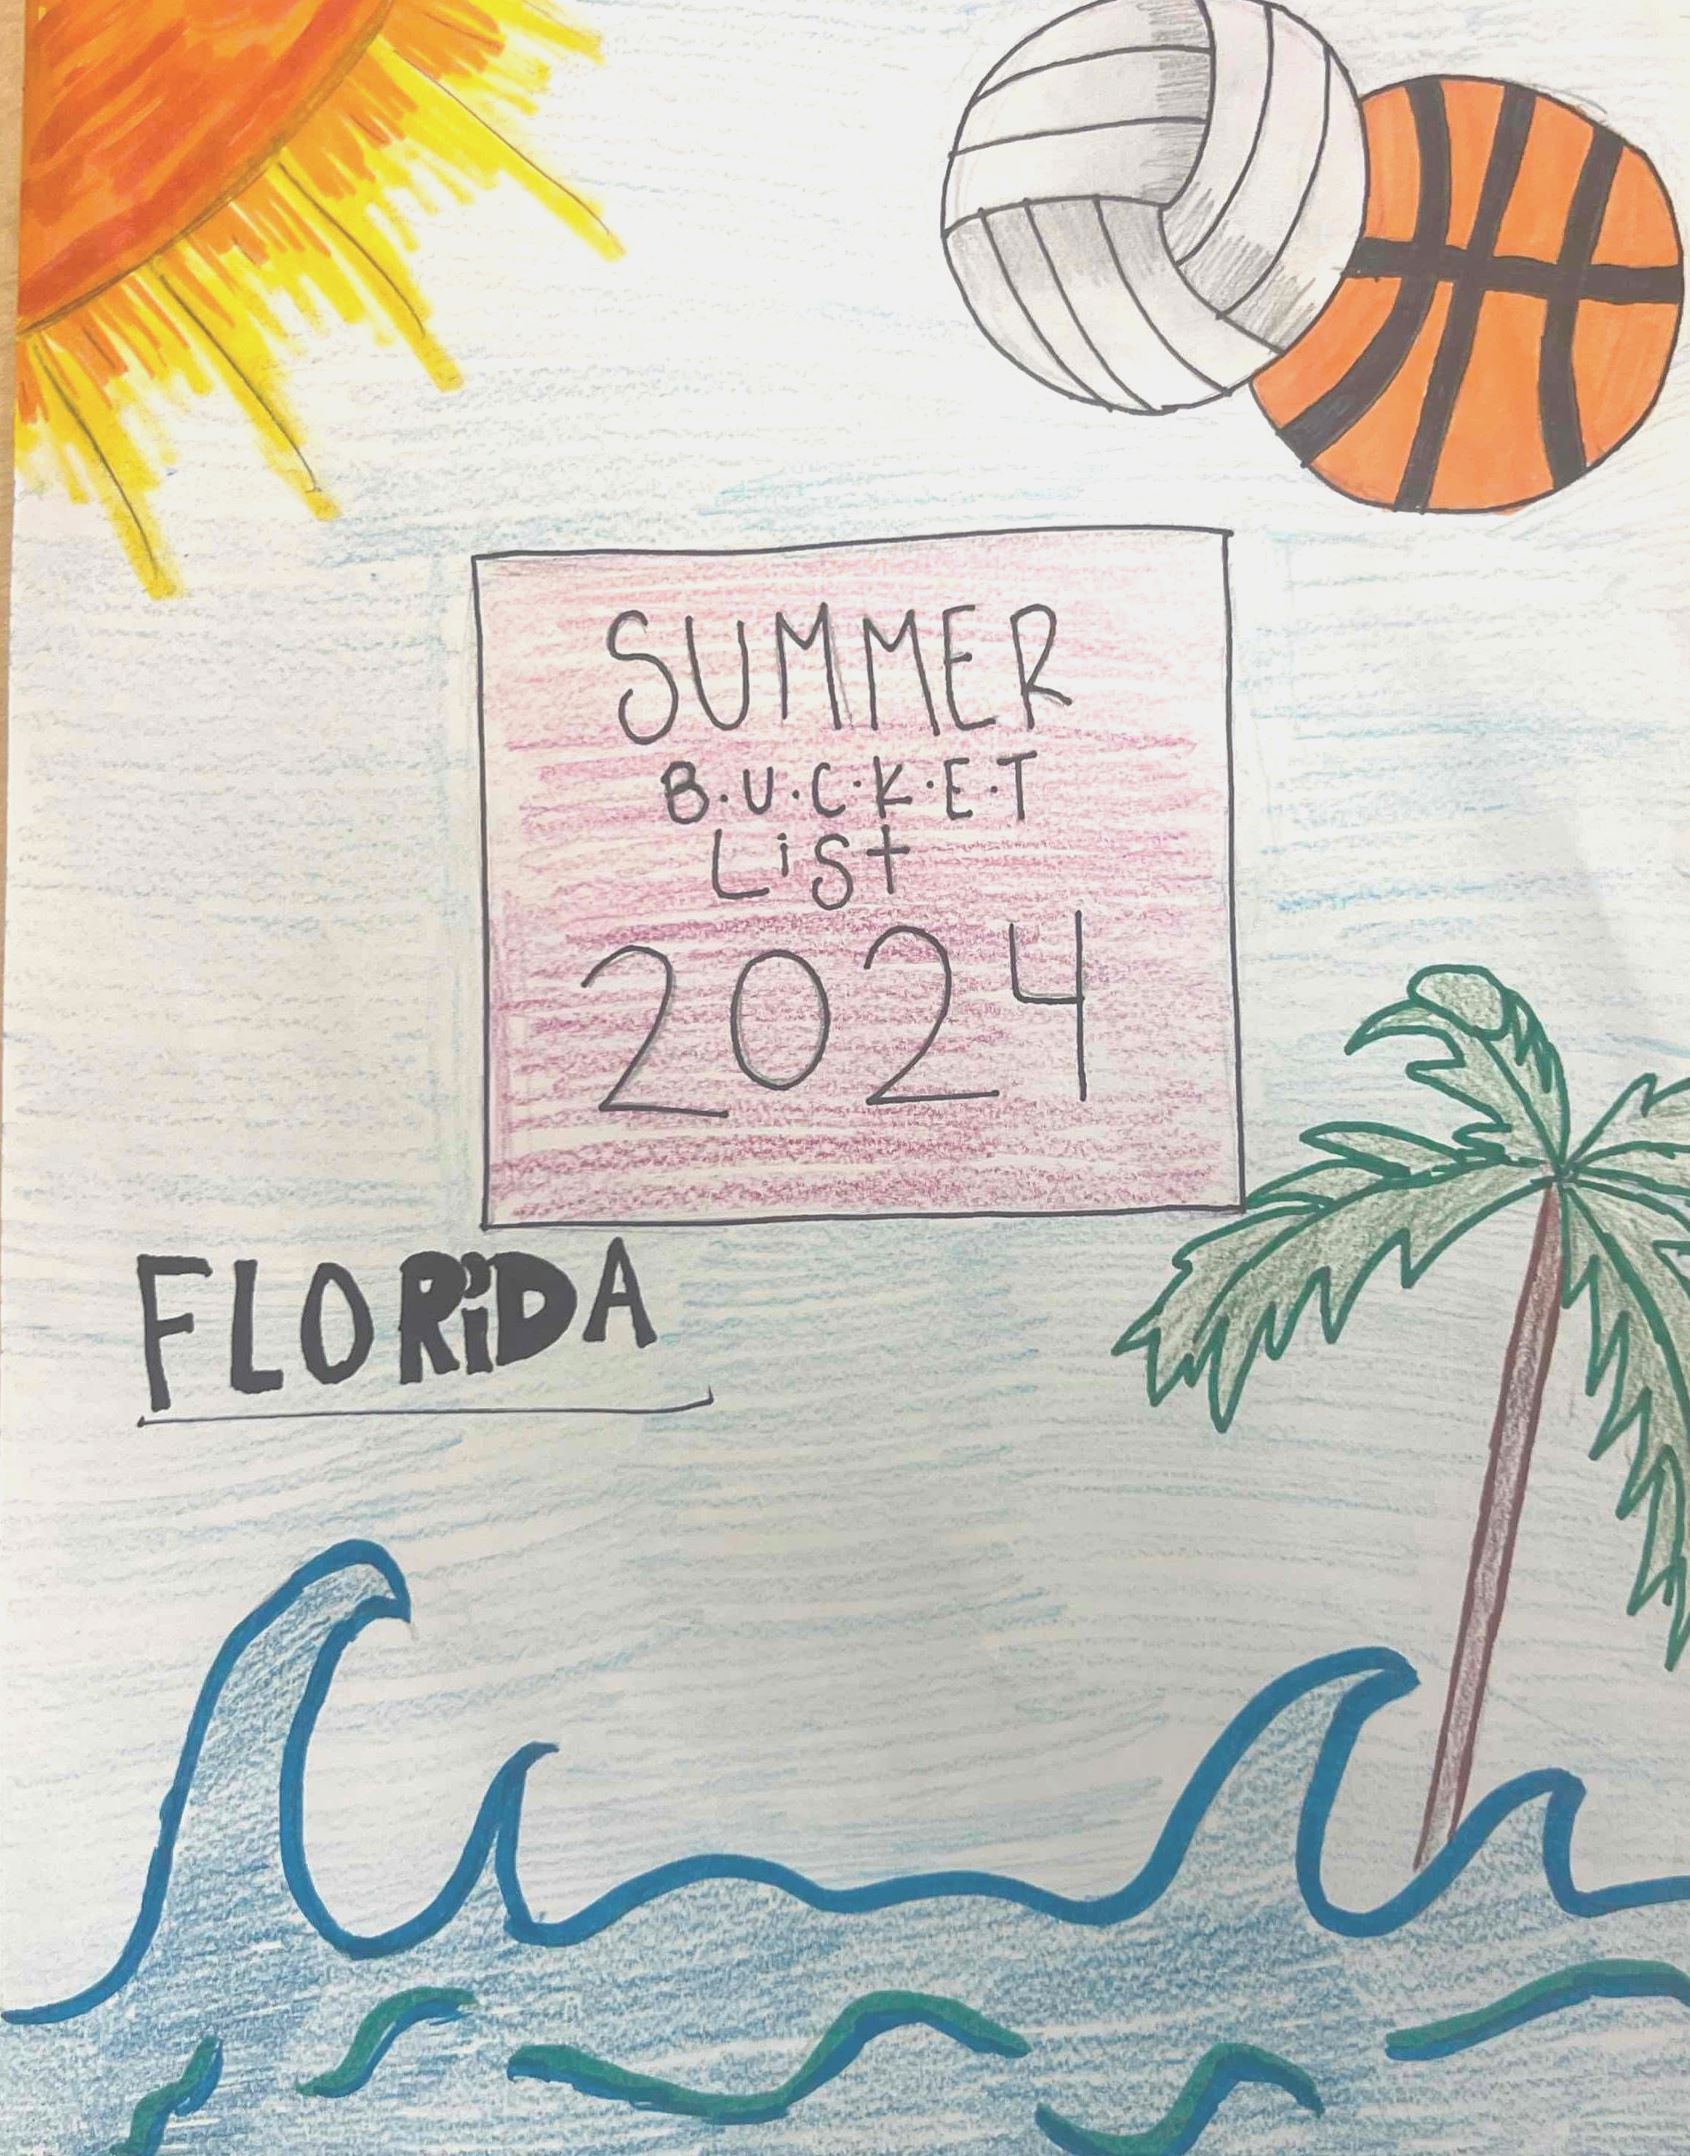 SUMMER
B.U.C.K.E.T
List
2024
FLORiDA